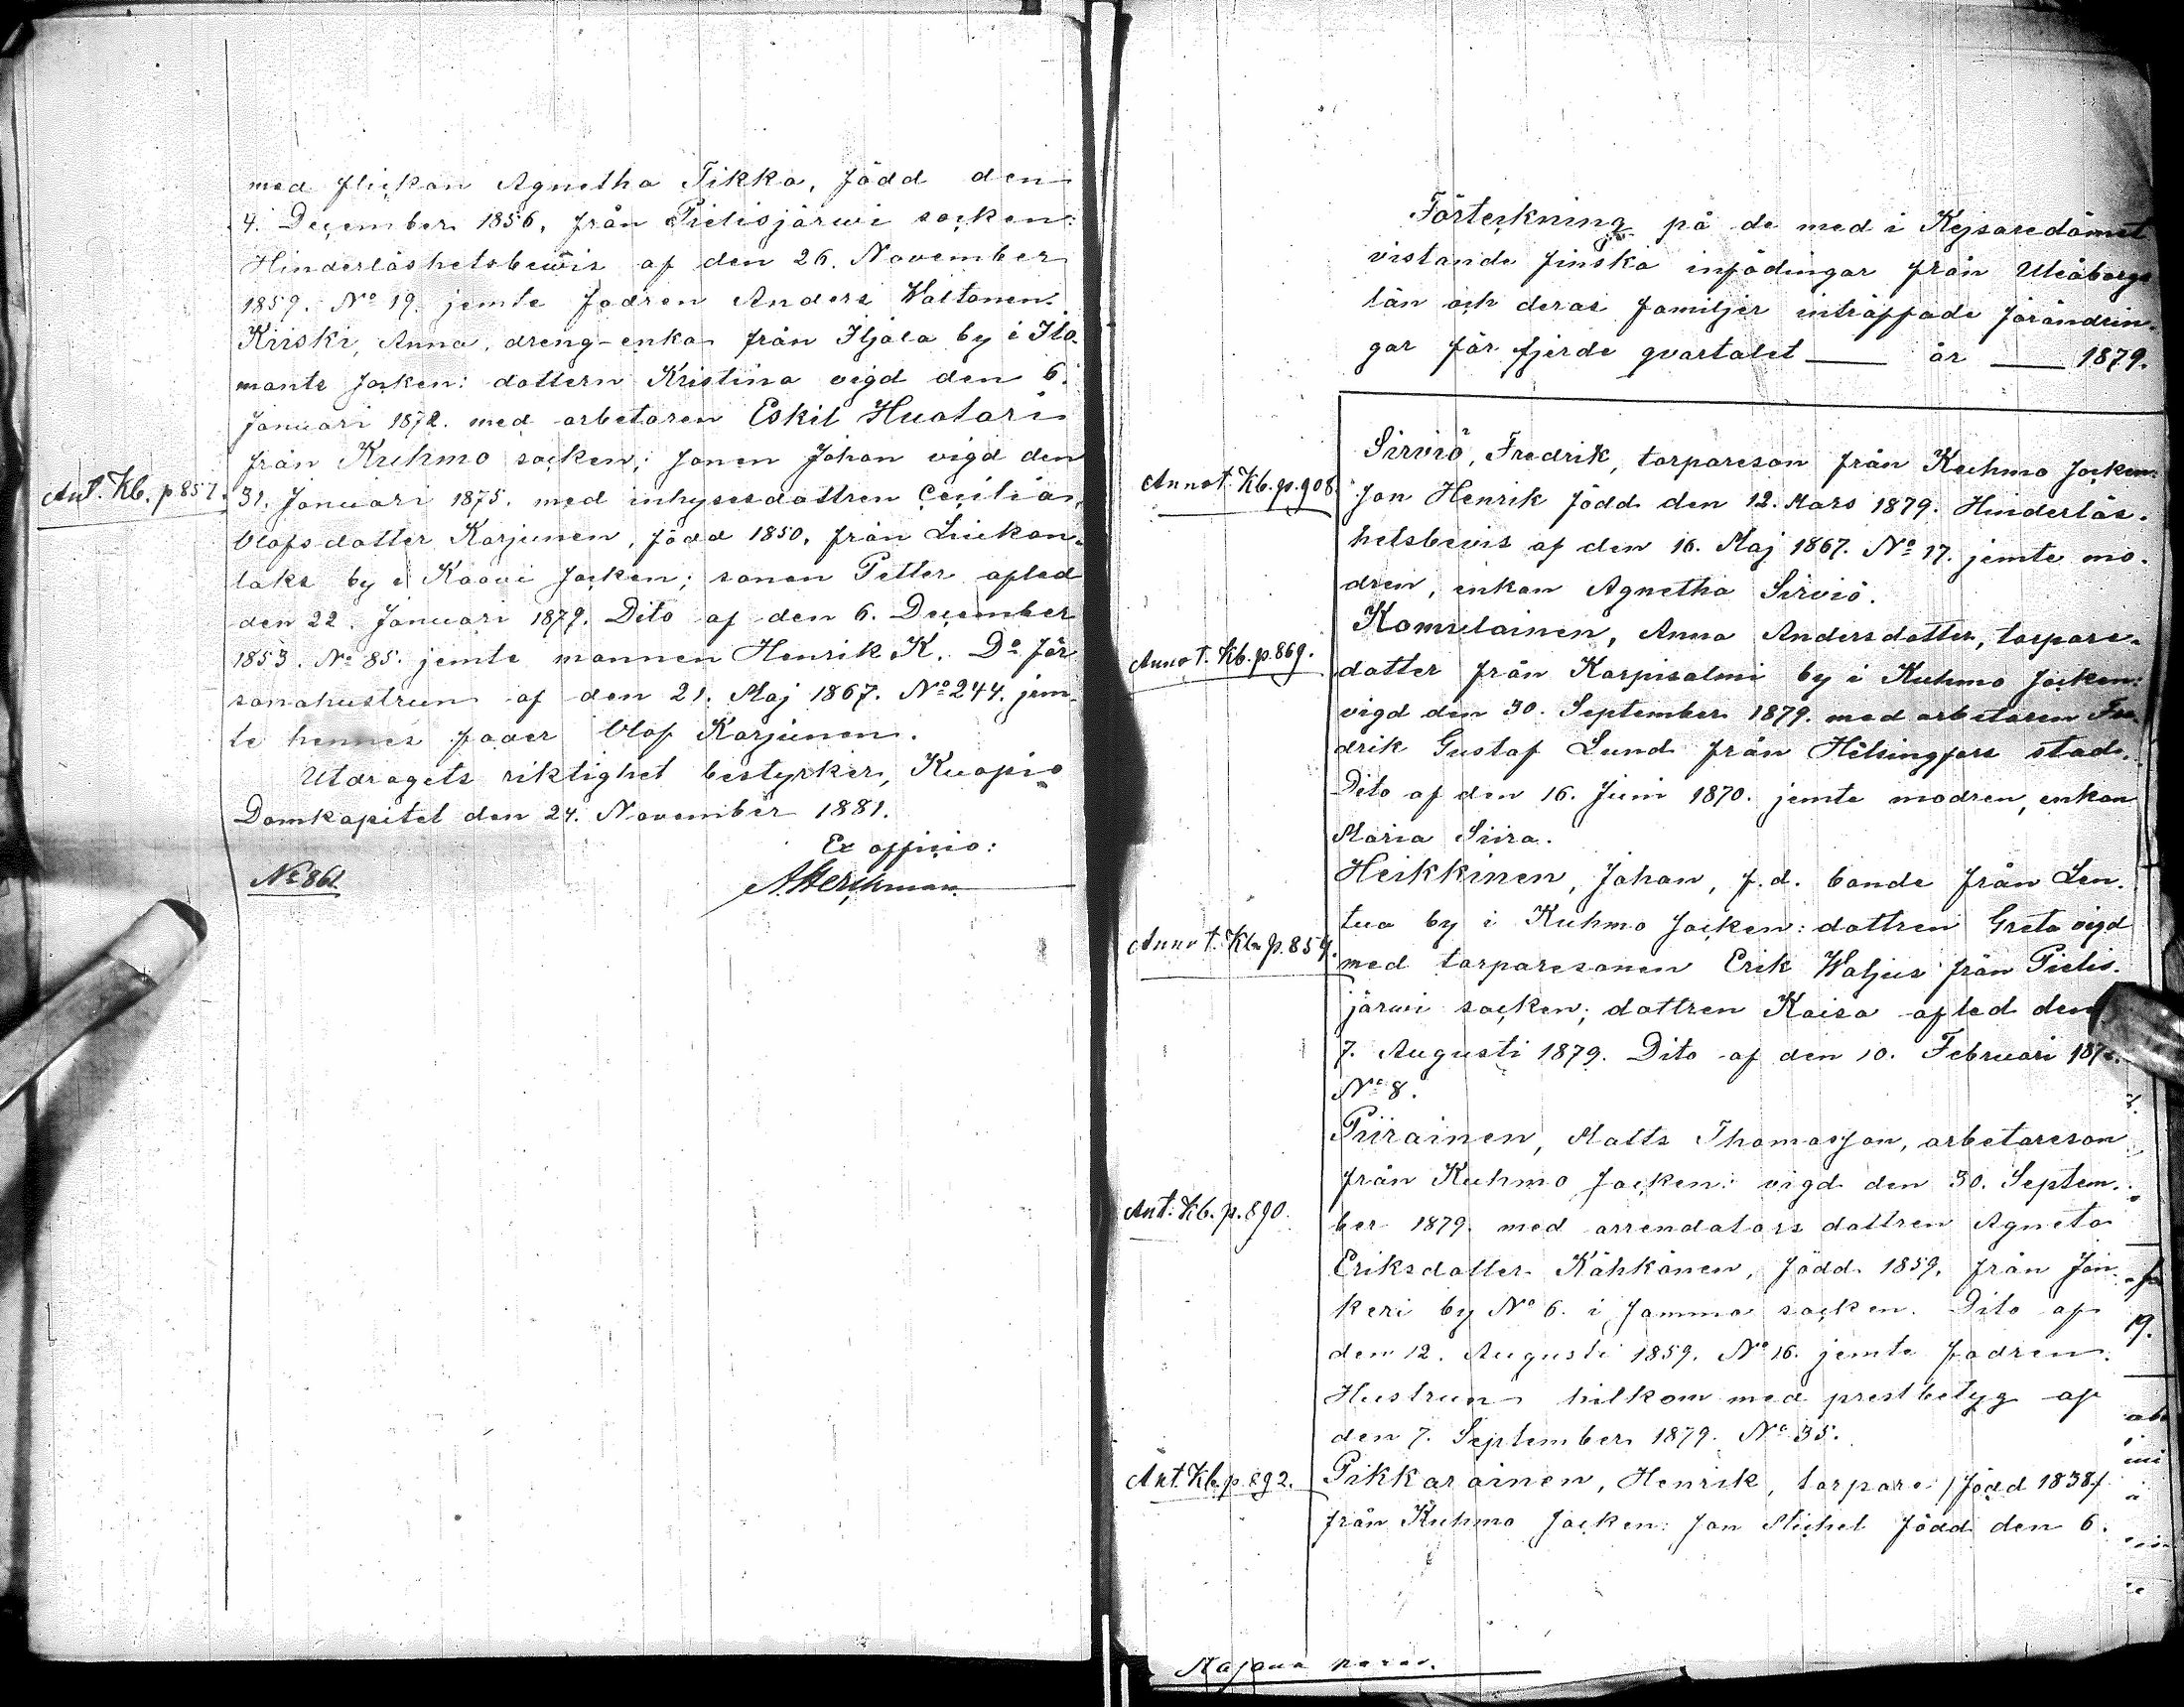 med flickan Agnetha Tikka, född den
4. December 1856, från Pielisjärwi socken:
Hinderlöshetsbewis af den 26. November
1859. No 19. jemte fadren Anders Waltonen.
Kiiski, Anna, dreng-enka från Iljala by i Ilo-
mants socken: dottern Kristina vigd den 6.
Januari 1872. med arbetaren Eskil Huotari
från Kuhmo socken; sonen Johan vigd den
Ant. Kb. p 857.
31. Januari 1875. med inhysesdottren Cecilia
Olofsdotter Karjunen, född 1850, från Luikon-
laks by i Kaavi socken; sonen Petter afled
den 22. Januari 1879. Dito af den 6. December
1853. No 85. jemte mannen Henrik K. Do för
sonahustrun af den 21. Maj 1867. No 244. jem-
te hennes fader Olof Karjunen.
Utdragets riktighet bestyrker, Kuopio
Domkapitel den 24. November 1881.
Ex officio:
No 861.
Förteckning på de med i Kejsaredömet
vistande finska infödingar från Uleåborgs
län och deras familjer inträffade förändrin-
gar för fjerde qvartalet år 1879.
Sirviö, Fredrik, torpareson från Kuhmo socken:
Annot. Kb. p. 908.
son Henrik född den 12. Mars 1879. Hinderlös-
hetsbevis af den 16. Maj 1867. No 17. jemte mo-
dren, enkan Agnetha Sirviö.
Komulainen, Anna Andersdotter, torpare-
Annot. Kb. p. 869.
dotter från Korpisalmi by i Kuhmo socken:
vigd den 30. September 1879. med arbetaren Fre-
drik Gustaf Lund från Helsingfors stad.
Dito af den 16. Juni 1870. jemte modren, enkan
Maria Siira.
Heikkinen, Johan, f.d. bonde från Len-
tua by i Kuhmo socken: dottren Greta vigd
Annot. Kb. p. 859.
med torparesonen Erik Waljus från Pielis-
järwi socken; dottren Kaisa afled den
7. Augusti 1879. Dito af den 10. Februari
No 8.
Piirainen, Matts Thomasson, arbetareson
från Kuhmo socken: vigd den 30. Septem-
Ant. Kb. p. 890.
ber 1879. med arrendators dottren Agneta
Eriksdotter Kähkönen, född 1859, från Jon-
keri by No 6. i samma socken. Dito af
den 12. Augusti 1859. No 16. jemte fadren.
Hustrun tillkom med prestbetyg af
den 7. September 1879. No 35.
Ant. Kb. p. 892.
Pikkarainen, Henrik, torpare /född 1838/
från Kuhmo socken: son Michel född den 6.